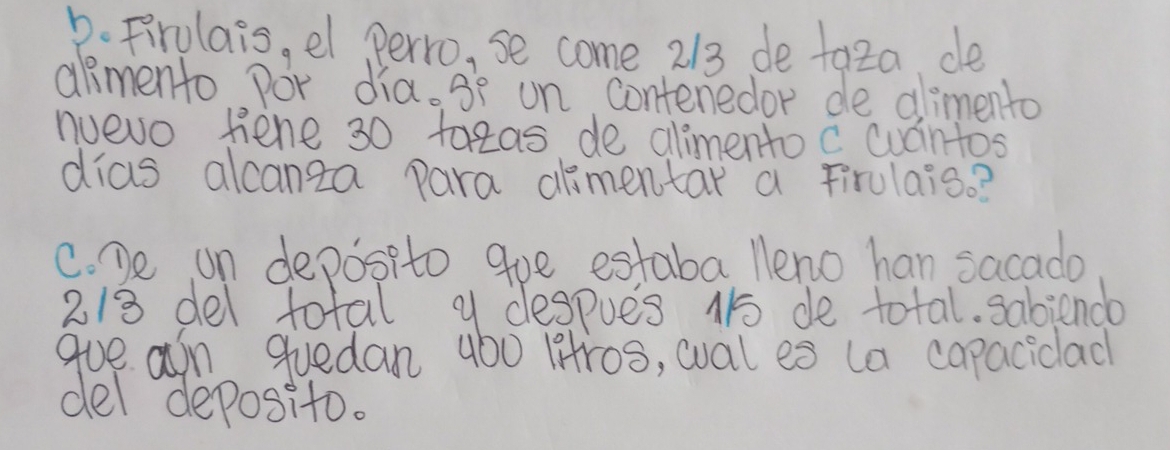 b. Firulais, el perro, se come 2/3 de taza de
alimento por día. Si un contenedor de alimento
nuevo tiene 30 tazas de alimento ¿ Cuántos
días alcanza para alimentar a Firulais.?
C. De un depósito que estaba lleno han sacado
2/3 del total y después 1/5 de total. sabiendo
que aún quedan 400 litros, cual es la capacidad
del deposito.